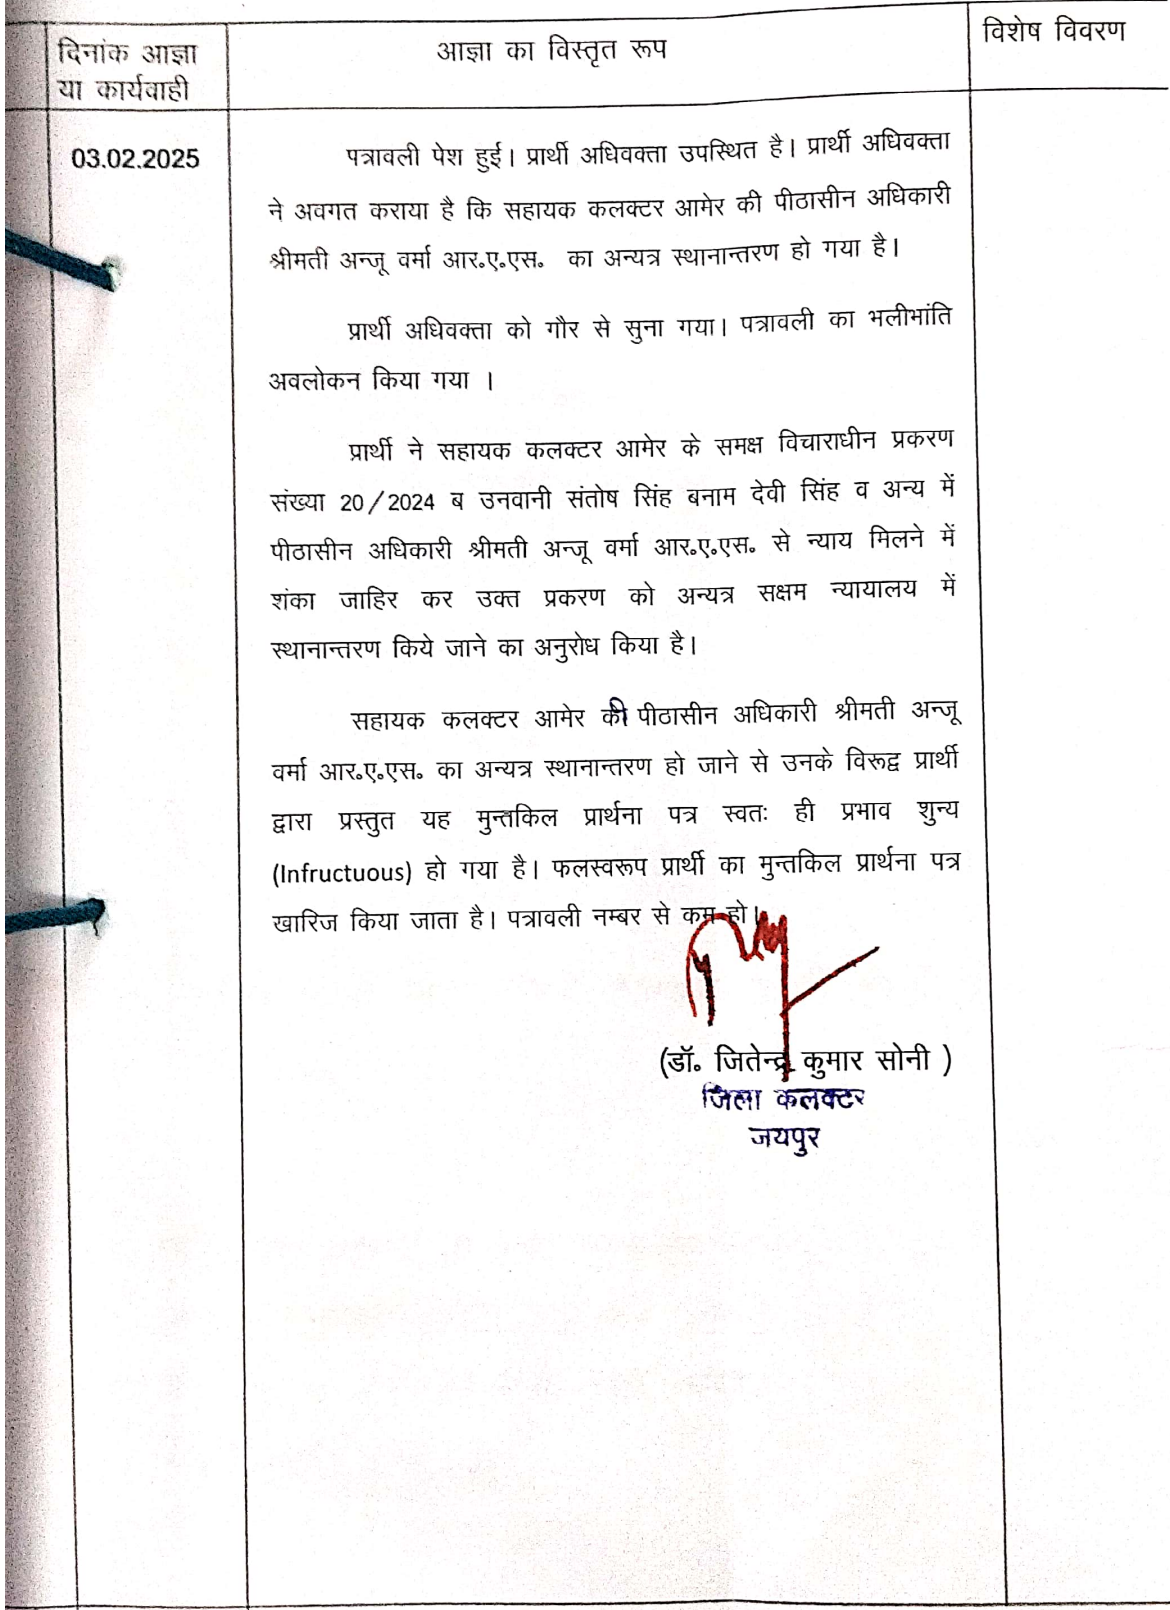 दिनांक आज्ञा
या कार्यवाही
आज्ञा का विस्तृत रूप
विशेष विवरण
03.02.2025
पत्रावली पेश हुई। प्रार्थी अधिवक्ता उपस्थित है। प्रार्थी अधिवक्ता
ने अवगत कराया है कि सहायक कलक्टर आमेर की पीठासीन अधिकारी
श्रीमती अन्जू वर्मा आर.ए.एस. का अन्यत्र स्थानान्तरण हो गया है।
प्रार्थी अधिवक्ता को गौर से सुना गया। पत्रावली का भलीभांति
अवलोकन किया गया ।
प्रार्थी ने सहायक कलक्टर आमेर के समक्ष विचाराधीन प्रकरण
संख्या 20/2024 ब उनवानी संतोष सिंह बनाम देवी सिंह व अन्य में
पीठासीन अधिकारी श्रीमती अन्जू वर्मा आर.ए.एस. से न्याय मिलने में
शंका जाहिर कर उक्त प्रकरण को अन्यत्र सक्षम न्यायालय में
स्थानान्तरण किये जाने का अनुरोध किया है।
सहायक कलक्टर आमेर की पीठासीन अधिकारी श्रीमती अन्जू
वर्मा आर.ए.एस. का अन्यत्र स्थानान्तरण हो जाने से उनके विरूद्व प्रार्थी
द्वारा प्रस्तुत यह मुन्तकिल प्रार्थना पत्र स्वतः ही प्रभाव शुन्य
(Infructuous) हो गया है। फलस्वरूप प्रार्थी का मुन्तकिल प्रार्थना पत्र
खारिज किया जाता है। पत्रावली नम्बर से कम हो।
(डॉ. जितेन्द्र कुमार सोनी )
जिला कलक्टर
जयपुर